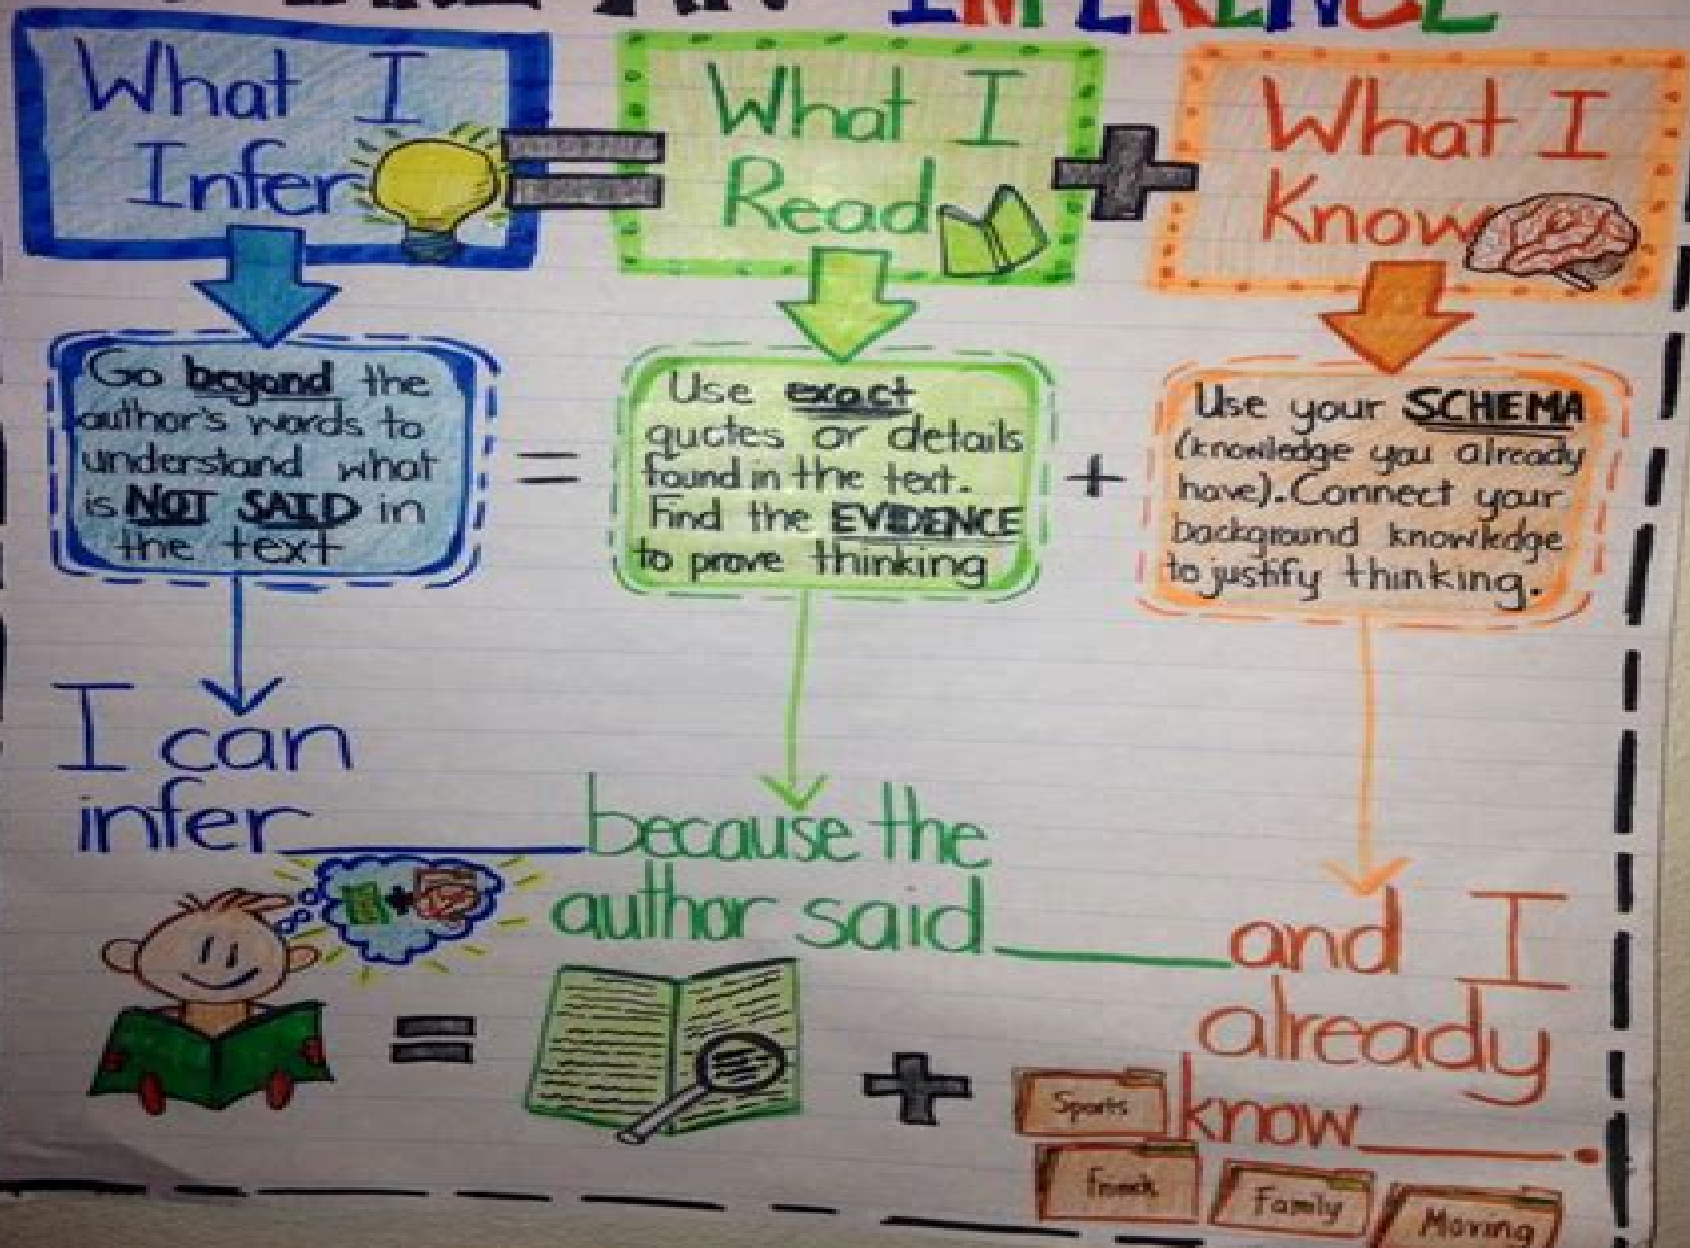 INFERENCE
What I
Infer
=
What I
Read
+
What I
Know
Go beyond the
author's words to
understand what
is NOT SAID in
the text
=
Use exact
quotes or details
found in the text.
Find the EVIDENCE
to prove thinking
+
Use your SCHEMA
(knowledge you already
have). Connect your
background knowledge
to justify thinking.
I can
infer______because the
author said______and I
already
know______.
=
+
Sports
Family
Moving